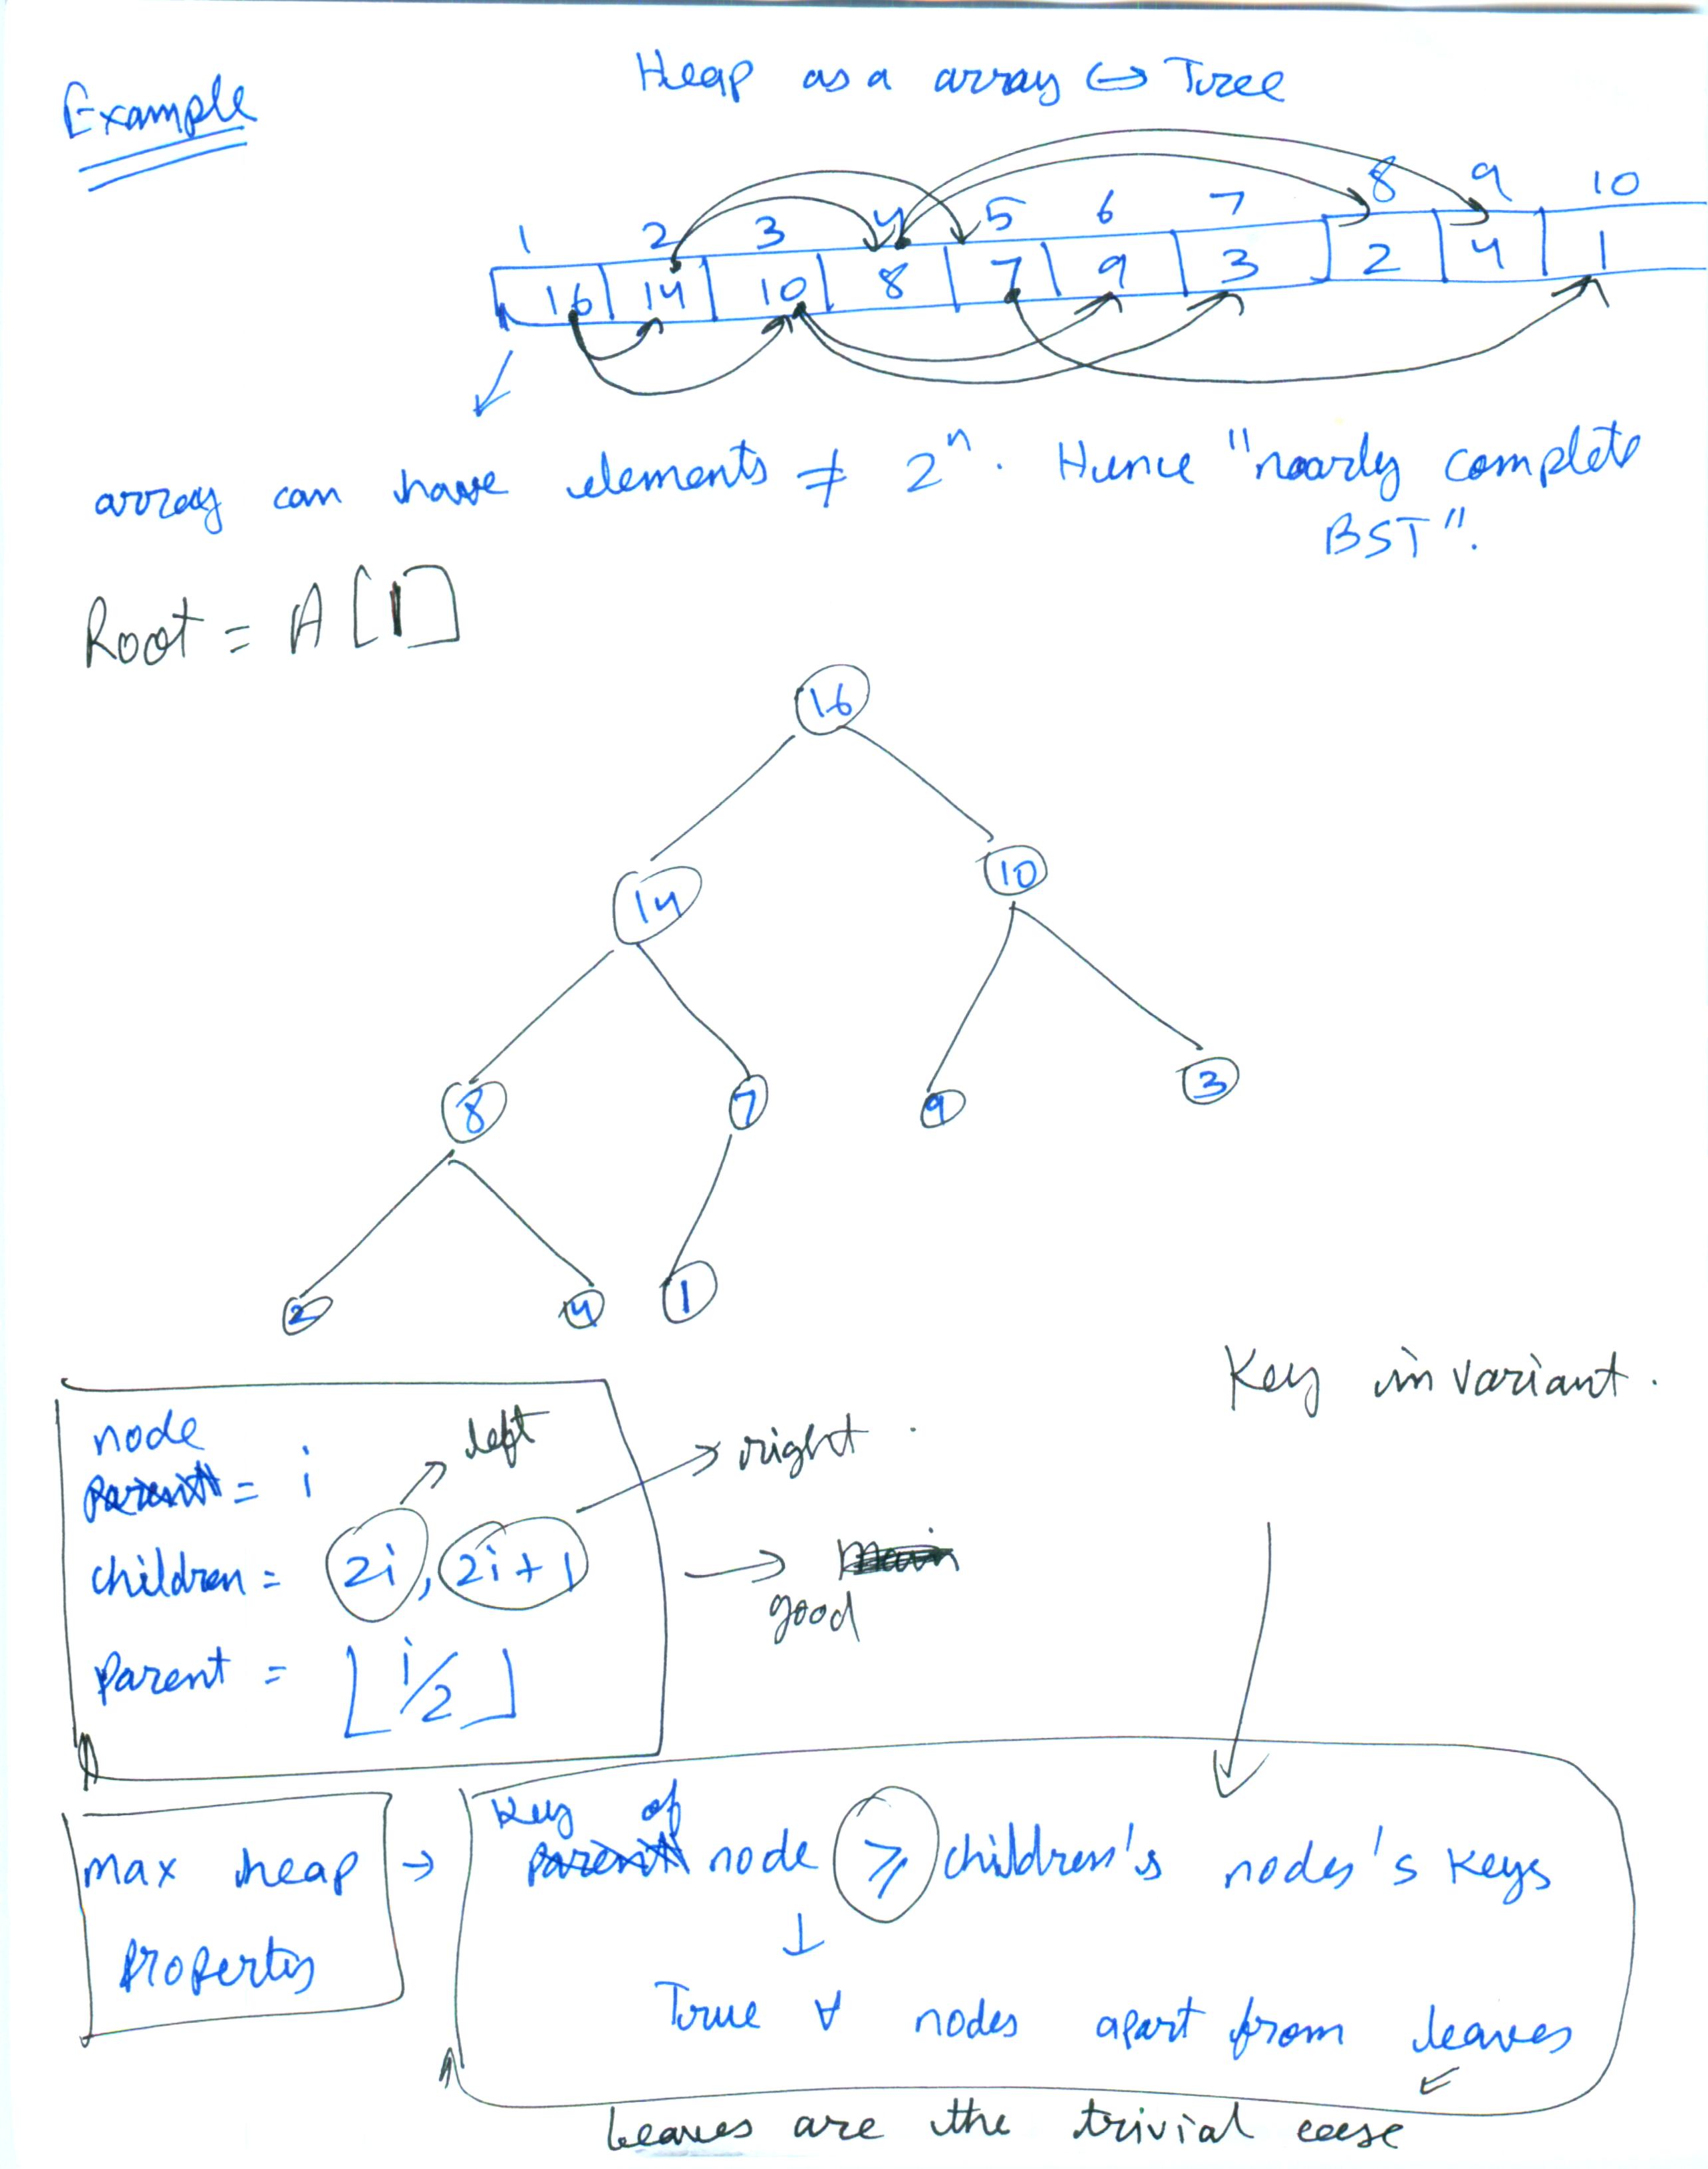 Example
Heap as a array ↔ Tree
1 2 3 4 5 6 7 8 9 10
16 14 10 8 7 9 3 2 4 1
array can have elements ≠ 2ⁿ. Hence "nearly complete
BST".
Root = A[1]
16
14 10
8 7 9 3
2 4 1
Key invariant.
node
parent = i
left
right.
children = 2i, 2i+1 →
good
parent = ⌊i/2⌋
max heap →
property
Key of
parent node ≥ children's nodes's keys
↓
True ∀ nodes apart from leaves
leaves are the trivial case